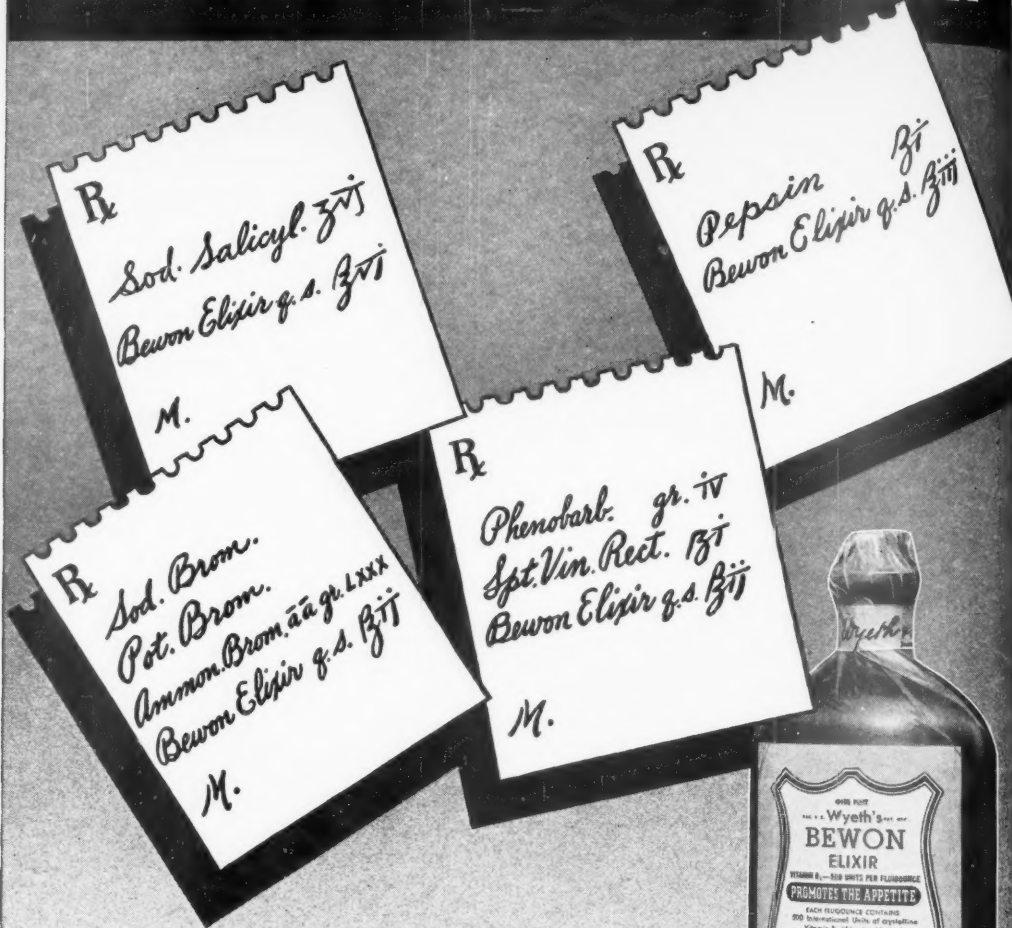 ℞
Sod. Salicyl. ʒvj
Bewon Elixir q. s. ℥vj
M.
℞
Pepsin ℥i
Bewon Elixir q. s. ℥iii
M.
℞
Sod. Brom.
Pot. Brom.
Ammon. Brom. āā gr. LXXX
Bewon Elixir q. s. ℥ij
M.
℞
Phenobarb. gr. iv
Spt. Vin. Rect. ℥i
Bewon Elixir q. s. ℥ij
M.
Wyeth
Wyeth's
BEWON
ELIXIR
VITAMIN B₁—500 UNITS PER FLUIDOUNCE
PROMOTES THE APPETITE
EACH FLUIDOUNCE CONTAINS
500 International Units of crystalline